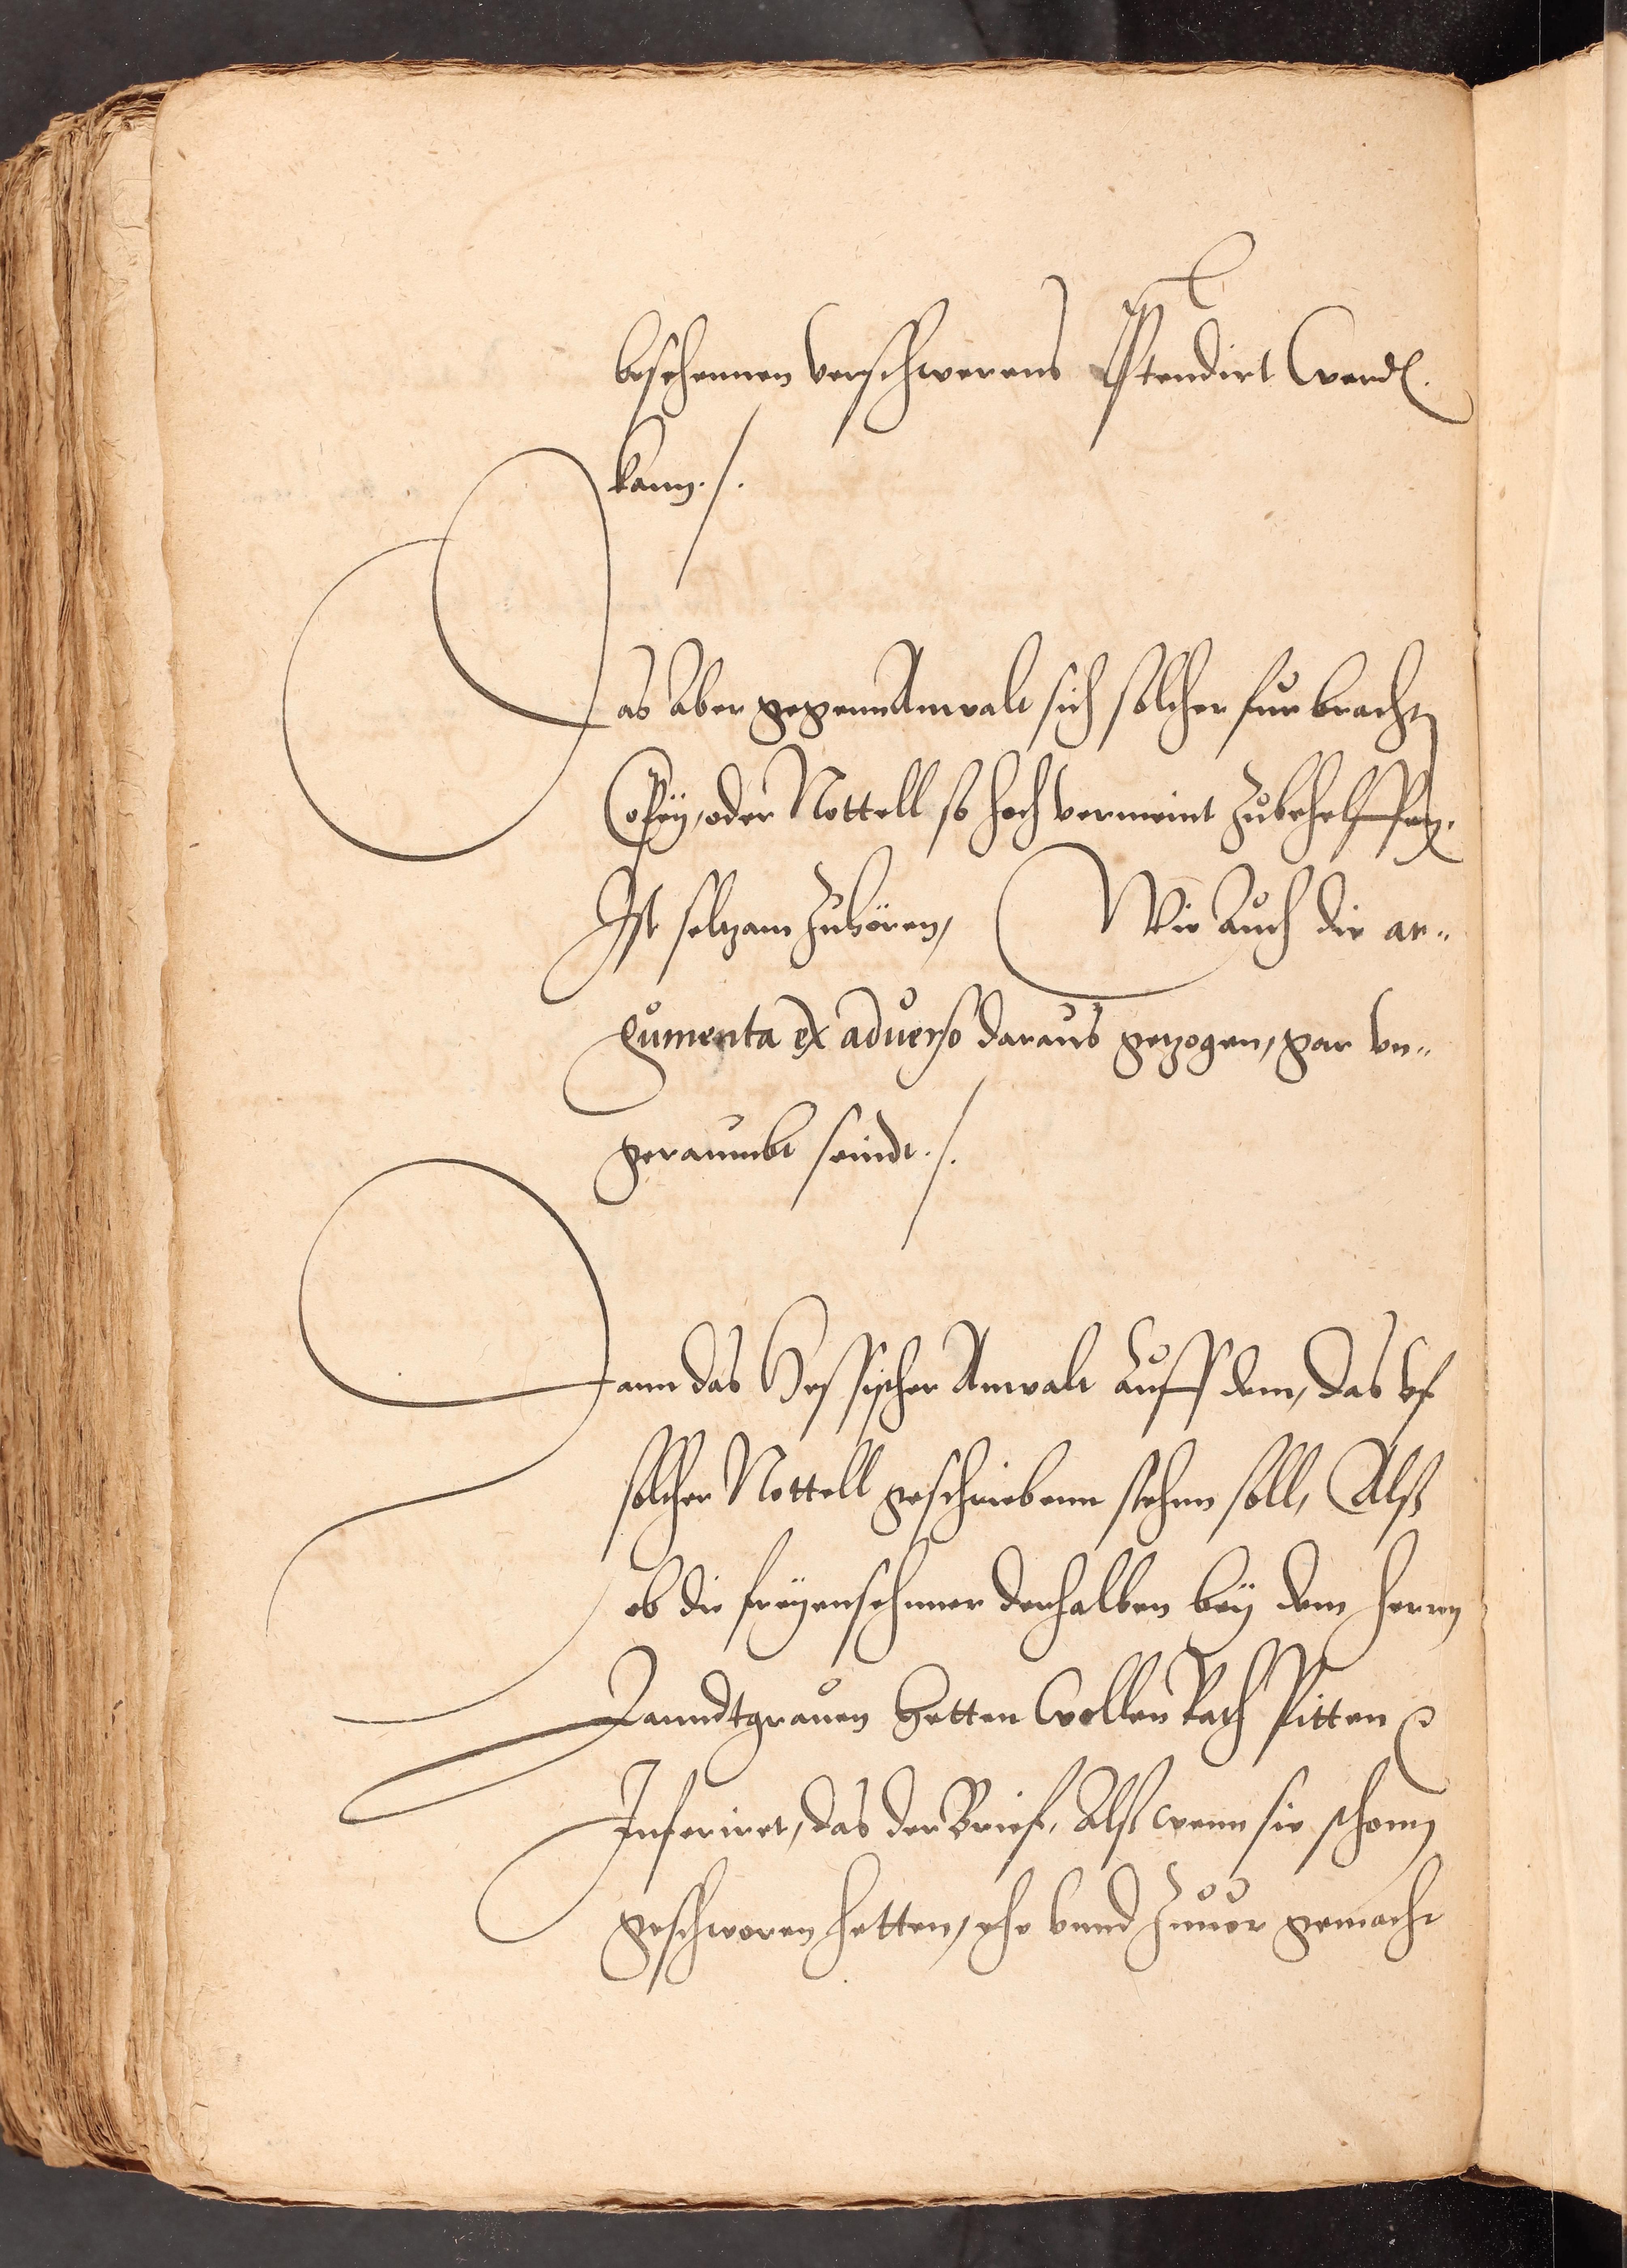 beschennen verschwerens ostendirt werden
kann ./.
Das aber gegenn Anwalt sich solcher fur bracht
Copey, oder Nottell so hoch vermeint zubehelffen.
Ist seltzam zuhören, Wie auch die ar„
gumenta ex aduerso daraus gezogen, gar vn„
geraumbt seindt ./.
Dann das Hessischer Anwalt auff dem, das vf
solcher Nottell geschriebenn stehnn soll, Alß
ob die freyensehener derhalben bey dem herrn
Lanndtgrauen hetten wollen Rath bitten
Inferiret, das der Brief, Alß wenn sie schonn
geschworen hetten, ehe vnnd zuuor gemacht